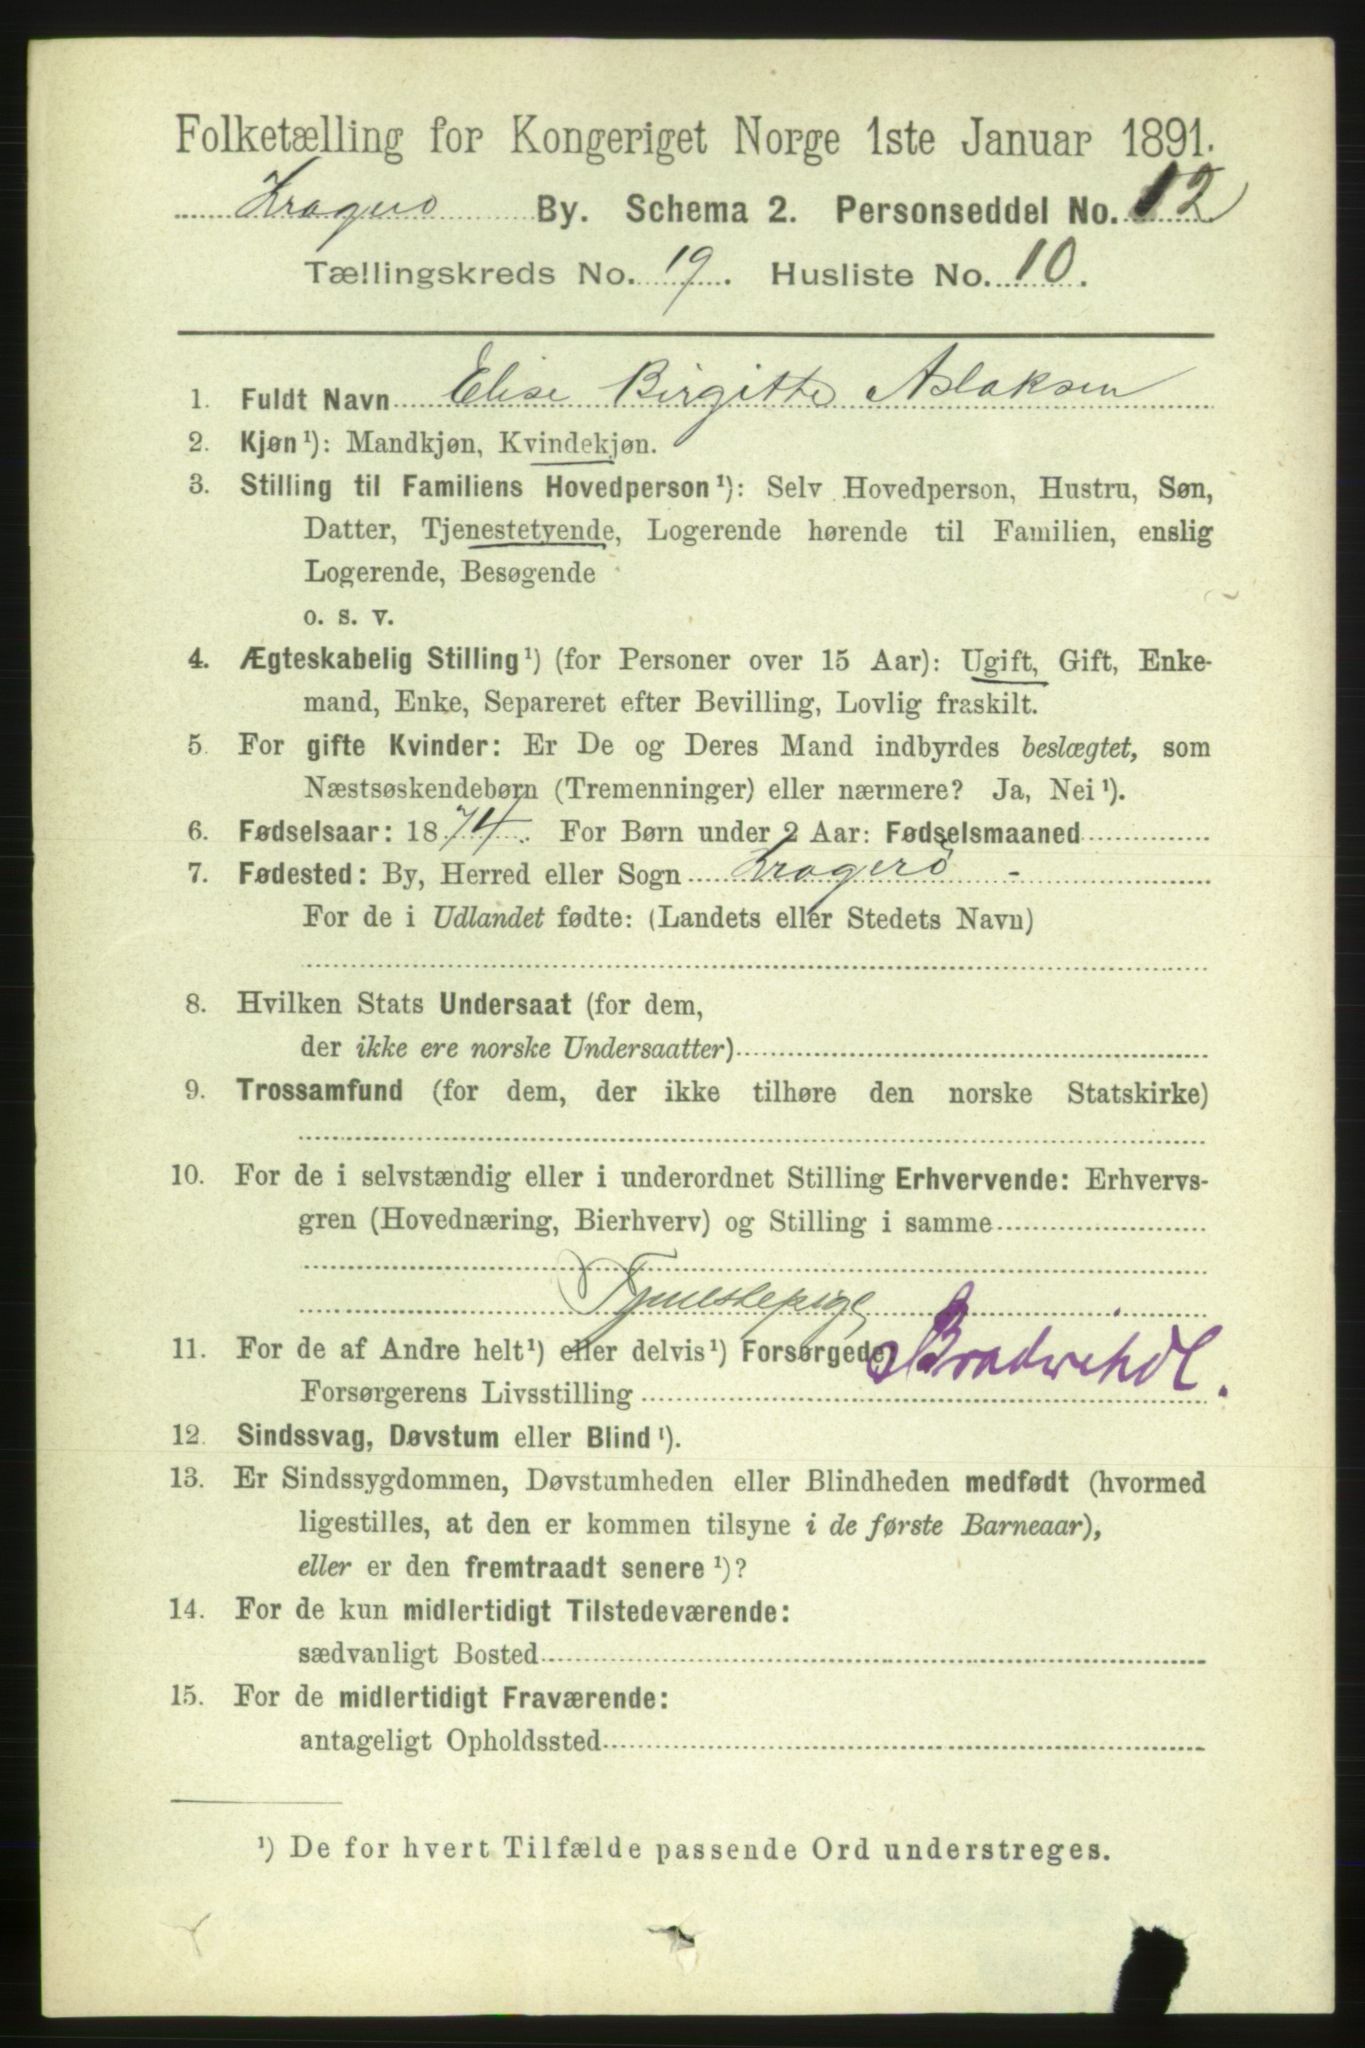 Folketælling for Kongeriget Norge 1ste Januar 1891.
Kragerø By. Schema 2. Personseddel No. 12
Tællingskreds No. 19. Husliste No. 10.
1. Fuldt Navn Elise Birgitte Aslaksen
2. Kjøn¹): Mandkjøn, Kvindekjøn.
3. Stilling til Familiens Hovedperson¹): Selv Hovedperson, Hustru, Søn,
Datter, Tjenestetyende, Logerende hørende til Familien, enslig
Logerende, Besøgende
o. s. v.
4. Ægteskabelig Stilling¹) (for Personer over 15 Aar): Ugift, Gift, Enke-
mand, Enke, Separeret efter Bevilling, Lovlig fraskilt.
5. For gifte Kvinder: Er De og Deres Mand indbyrdes beslægtet, som
Næstsøskendebørn (Tremenninger) eller nærmere? Ja, Nei¹).
6. Fødselsaar: 1874. For Børn under 2 Aar: Fødselsmaaned
7. Fødested: By, Herred eller Sogn Kragerø -
For de i Udlandet fødte: (Landets eller Stedets Navn)
8. Hvilken Stats Undersaat (for dem,
der ikke ere norske Undersaatter)
9. Trossamfund (for dem, der ikke tilhøre den norske Statskirke)
10. For de i selvstændig eller i underordnet Stilling Erhvervende: Erhvervs-
gren (Hovednæring, Bierhverv) og Stilling i samme
Tjenestepige
11. For de af Andre helt¹) eller delvis¹) Forsørgede
Forsørgerens Livsstilling
12. Sindssvag, Døvstum eller Blind¹).
13. Er Sindssygdommen, Døvstumheden eller Blindheden medfødt (hvormed
ligestilles, at den er kommen tilsyne i de første Barneaar),
eller er den fremtraadt senere¹)?
14. For de kun midlertidigt Tilstedeværende:
sædvanligt Bosted
15. For de midlertidigt Fraværende:
antageligt Opholdssted
¹) De for hvert Tilfælde passende Ord understreges.